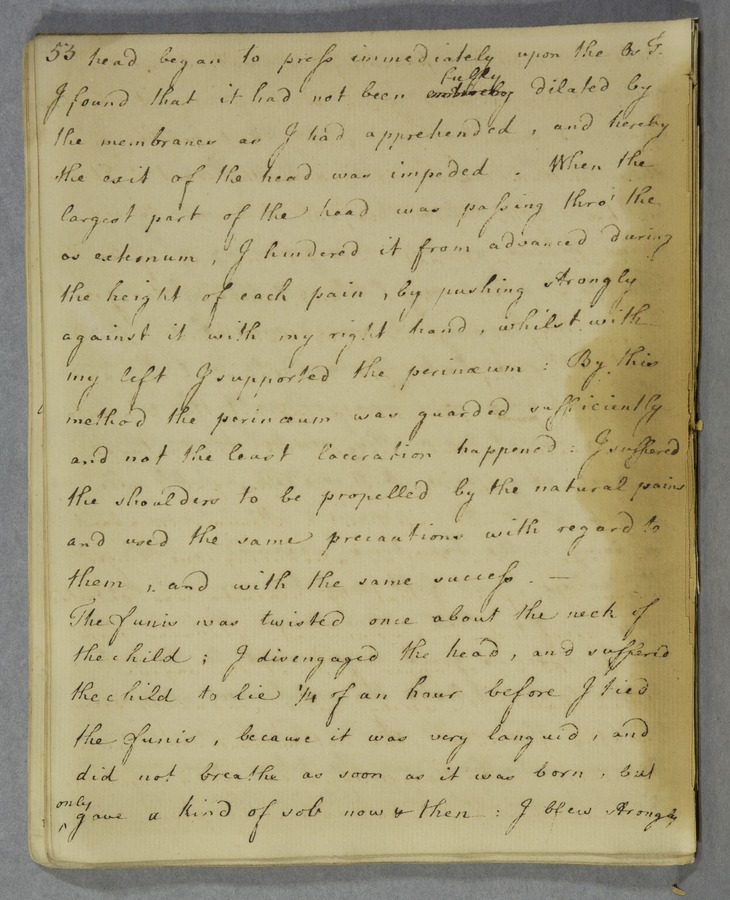 53 head began to press immediately upon the Os T.
I found that it had not been fully dilated by
the membranes as I had apprehended, and hereby
the exit of the head was impeded. When the
largest part of the head was passing thro' the
os externum, I hindered it from advanced during
the height of each pain, by pushing strongly
against it with my right hand, whilst with
my left I supported the perinæum : By this
method the perinœum was guarded sufficiently
and not the least laceration happened : I suffered
the shoulders to be propelled by the natural pains
and used the same precautions with regard to
them, and with the same success. —
The funis was twisted once about the neck of
the child ; I disengaged the head, and suffered
the child to lie 1/4 of an hour before I tied
the funis, because it was very languid, and
did not breathe as soon as it was born, but
only gave a kind of sob now & then : I blew strongly